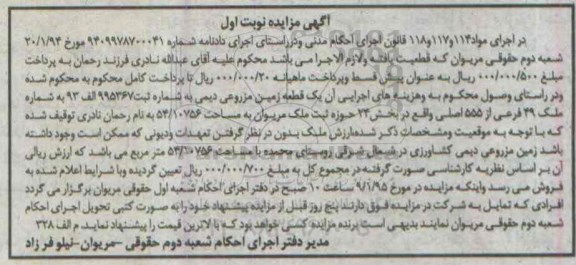 آگهی مزایده نوبت اول
در اجرای مواد۱۱۴و۱۱۷و۱۱۸ قانون اجرای احکام مدنی ودرراستای اجرای دادنامه شماره ۹۴۰۹۹۷۸۷۰۰۰۴۱ مورخ ۲۰/۱/۹۴
شعبه دوم حقوقی مریوان که قطعیت یافته ولازم الاجرا می باشد محکوم علیه آقای عبدالله نادری فرزند رحمان به پرداخت
مبلغ ۰۰۰/۰۰۰/۵۰۰ ریال به عنوان پیش قسط وپرداخت ماهیانه ۰۰۰/۰۰۰/۲۰ ریال تا پرداخت کامل محکوم به محکوم شده
ودر راستای وصول محکوم به وهزینه های اجرایی آن یک قطعه زمین مزروعی دیمی به شماره ثبت۹۹۵۳۶۷ الف ۹۳ به شماره
ملک ۴۹ فرعی از ۵۵۵ اصلی واقع در بخش۲۳ حوزه ثبت ملک مریوان به مساحت ۵۴/۱۰۷۵۶ به نام رحمان نادری توقیف شده
که با توجه به موقعیت ومشخصات ذکر شده ارزش ملک بدون در نظر گرفتن تعهدات ودیونی که ممکن است وجود داشته
باشد زمین مزروعی دیمی کشاورزی در شمال شرقی روستای محمده با مساحت ۵۴/۱۰۷۵۶ متر مربع می باشد که ارزش ریالی
آن بر اساس نظریه کارشناسی صورت گرفته در مجموع کل به مبلغ ۰۰۰/۰۰۰/۷۰۰ ریال تعیین گردیده وبا شرایط اعلام شده به
فروش می رسد واینکه مزایده در مورخ ۹/۱/۹۵ ساعت ۱۰ صبح در دفتر اجرای احکام شعبه اول حقوقی مریوان برگزار می گردد
افرادی که تمایل به شرکت در مزایده فوق دارند پنج روز قبل از مزایده پیشنهاد خود را به صورت کتبی تحویل اجرای احکام
شعبه دوم حقوقی مریوان نمایند بدیهی است برنده مزایده کسی خواهد بود که بالاترین قیمت را پیشنهاد نماید. م الف ۳۲۸
مدیر دفتر اجرای احکام شعبه دوم حقوقی -مریوان-نیلوفر زاد